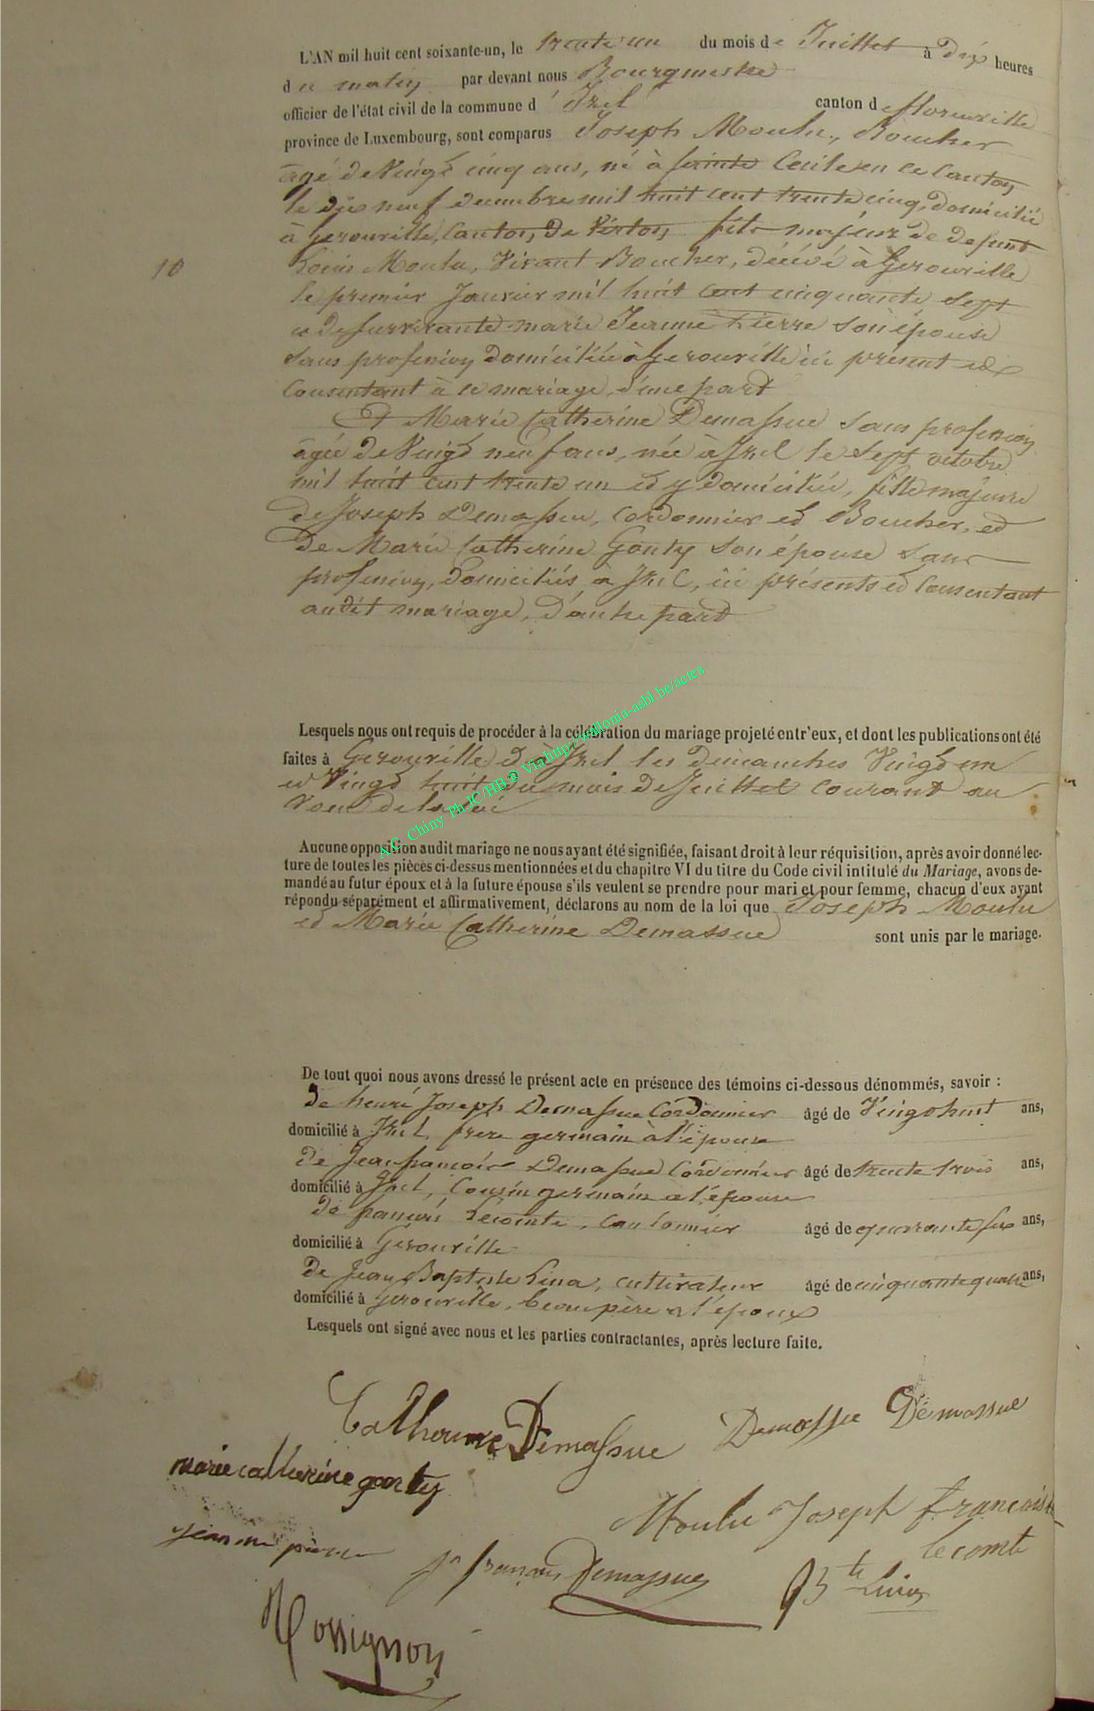 L'AN mil huit cent soixante-un, le trente un du mois de Juillet à dix heures
du matin par devant nous Bourgmestre
officier de l'état civil de la commune d' Izel canton de florenville
province de Luxembourg, sont comparus Joseph Moulu, Boucher
âgé de Vingt cinq ans, né à sainte Cecile en ce Canton,
le dix neuf decembre mil huit cent trente cinq, domicilié
à gerouville, Canton de Virton, fils majeur de defunt
10
Louis Moulu, Vivant Boucher, décédé à Gerouville
le premier Janvier mil huit cent cinquante sept
et de survivante marie Jeanne pierre son épouse
sans profession domiciliée à Gerouville ici présent et
Consentant à ce mariage, d'une part
Et Marie Catherine Demassue sans profession
âgée de Vingt neuf ans, née à Izel le sept octobre
mil huit cent trente un et y domiciliée, fille majeure
de Joseph Demassue, Cordonnier et Boucher, et
de Marie Catherine Gonty son épouse sans
profession, domiciliés à Izel, ici présents et Consentant
audit mariage, d'autre part
Lesquels nous ont requis de procéder à la célébration du mariage projeté entr'eux, et dont les publications ont été
faites à Gerouville et à Izel les dimanches Vingt un
et Vingt huit du mois de Juillet courant au
Voeu de la loi
A.E. Chiny Ph JC/HB @ Via http://wallonia-asbl.be/actes
Aucune opposition audit mariage ne nous ayant été signifiée, faisant droit à leur réquisition, après avoir donné lec-
ture de toutes les pièces ci-dessus mentionnées et du chapitre VI du titre du Code civil intitulé du Mariage, avons de-
mandé au futur époux et à la future épouse s'ils veulent se prendre pour mari et pour femme, chacun d'eux ayant
répondu séparément et affirmativement, déclarons au nom de la loi que Joseph Moulu
et Marie Catherine Demassue sont unis par le mariage.
De tout quoi nous avons dressé le présent acte en présence des témoins ci-dessous dénommés, savoir :
De henri Joseph Demassue Cordonnier âgé de Vingt huit ans,
domicilié à Izel, frere germain à l'épouse
De Jean francois Demassue Cordonnier âgé de trente trois ans,
domicilié à Izel, Cousin germain a l'épouse
De francois Lecomte, cantonnier âgé de quarante six ans,
domicilié à Gerouville
De Jean Baptiste Lina, cultivateur âgé de cinquante quatre ans,
domicilié à gerouville, beaupère a l'époux
Lesquels ont signé avec nous et les parties contractantes, après lecture faite.
Catherine Demassue Demassue Demassue
marie catherine gonty
Moulu Joseph francois
lecomte
jeanne pierre
jn francois Demassue Bte Lina
Rossignon